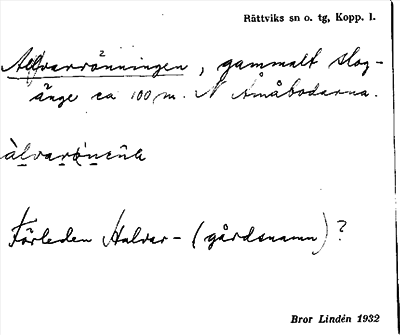 Rättviks sn o. tg, Kopp. l.
Allvarrönningen, gammalt slog-
änge ca 100 m. N Åmåbodarna.
Förleden Halvar- (gårdsnamn)?
Bror Lindén 1932